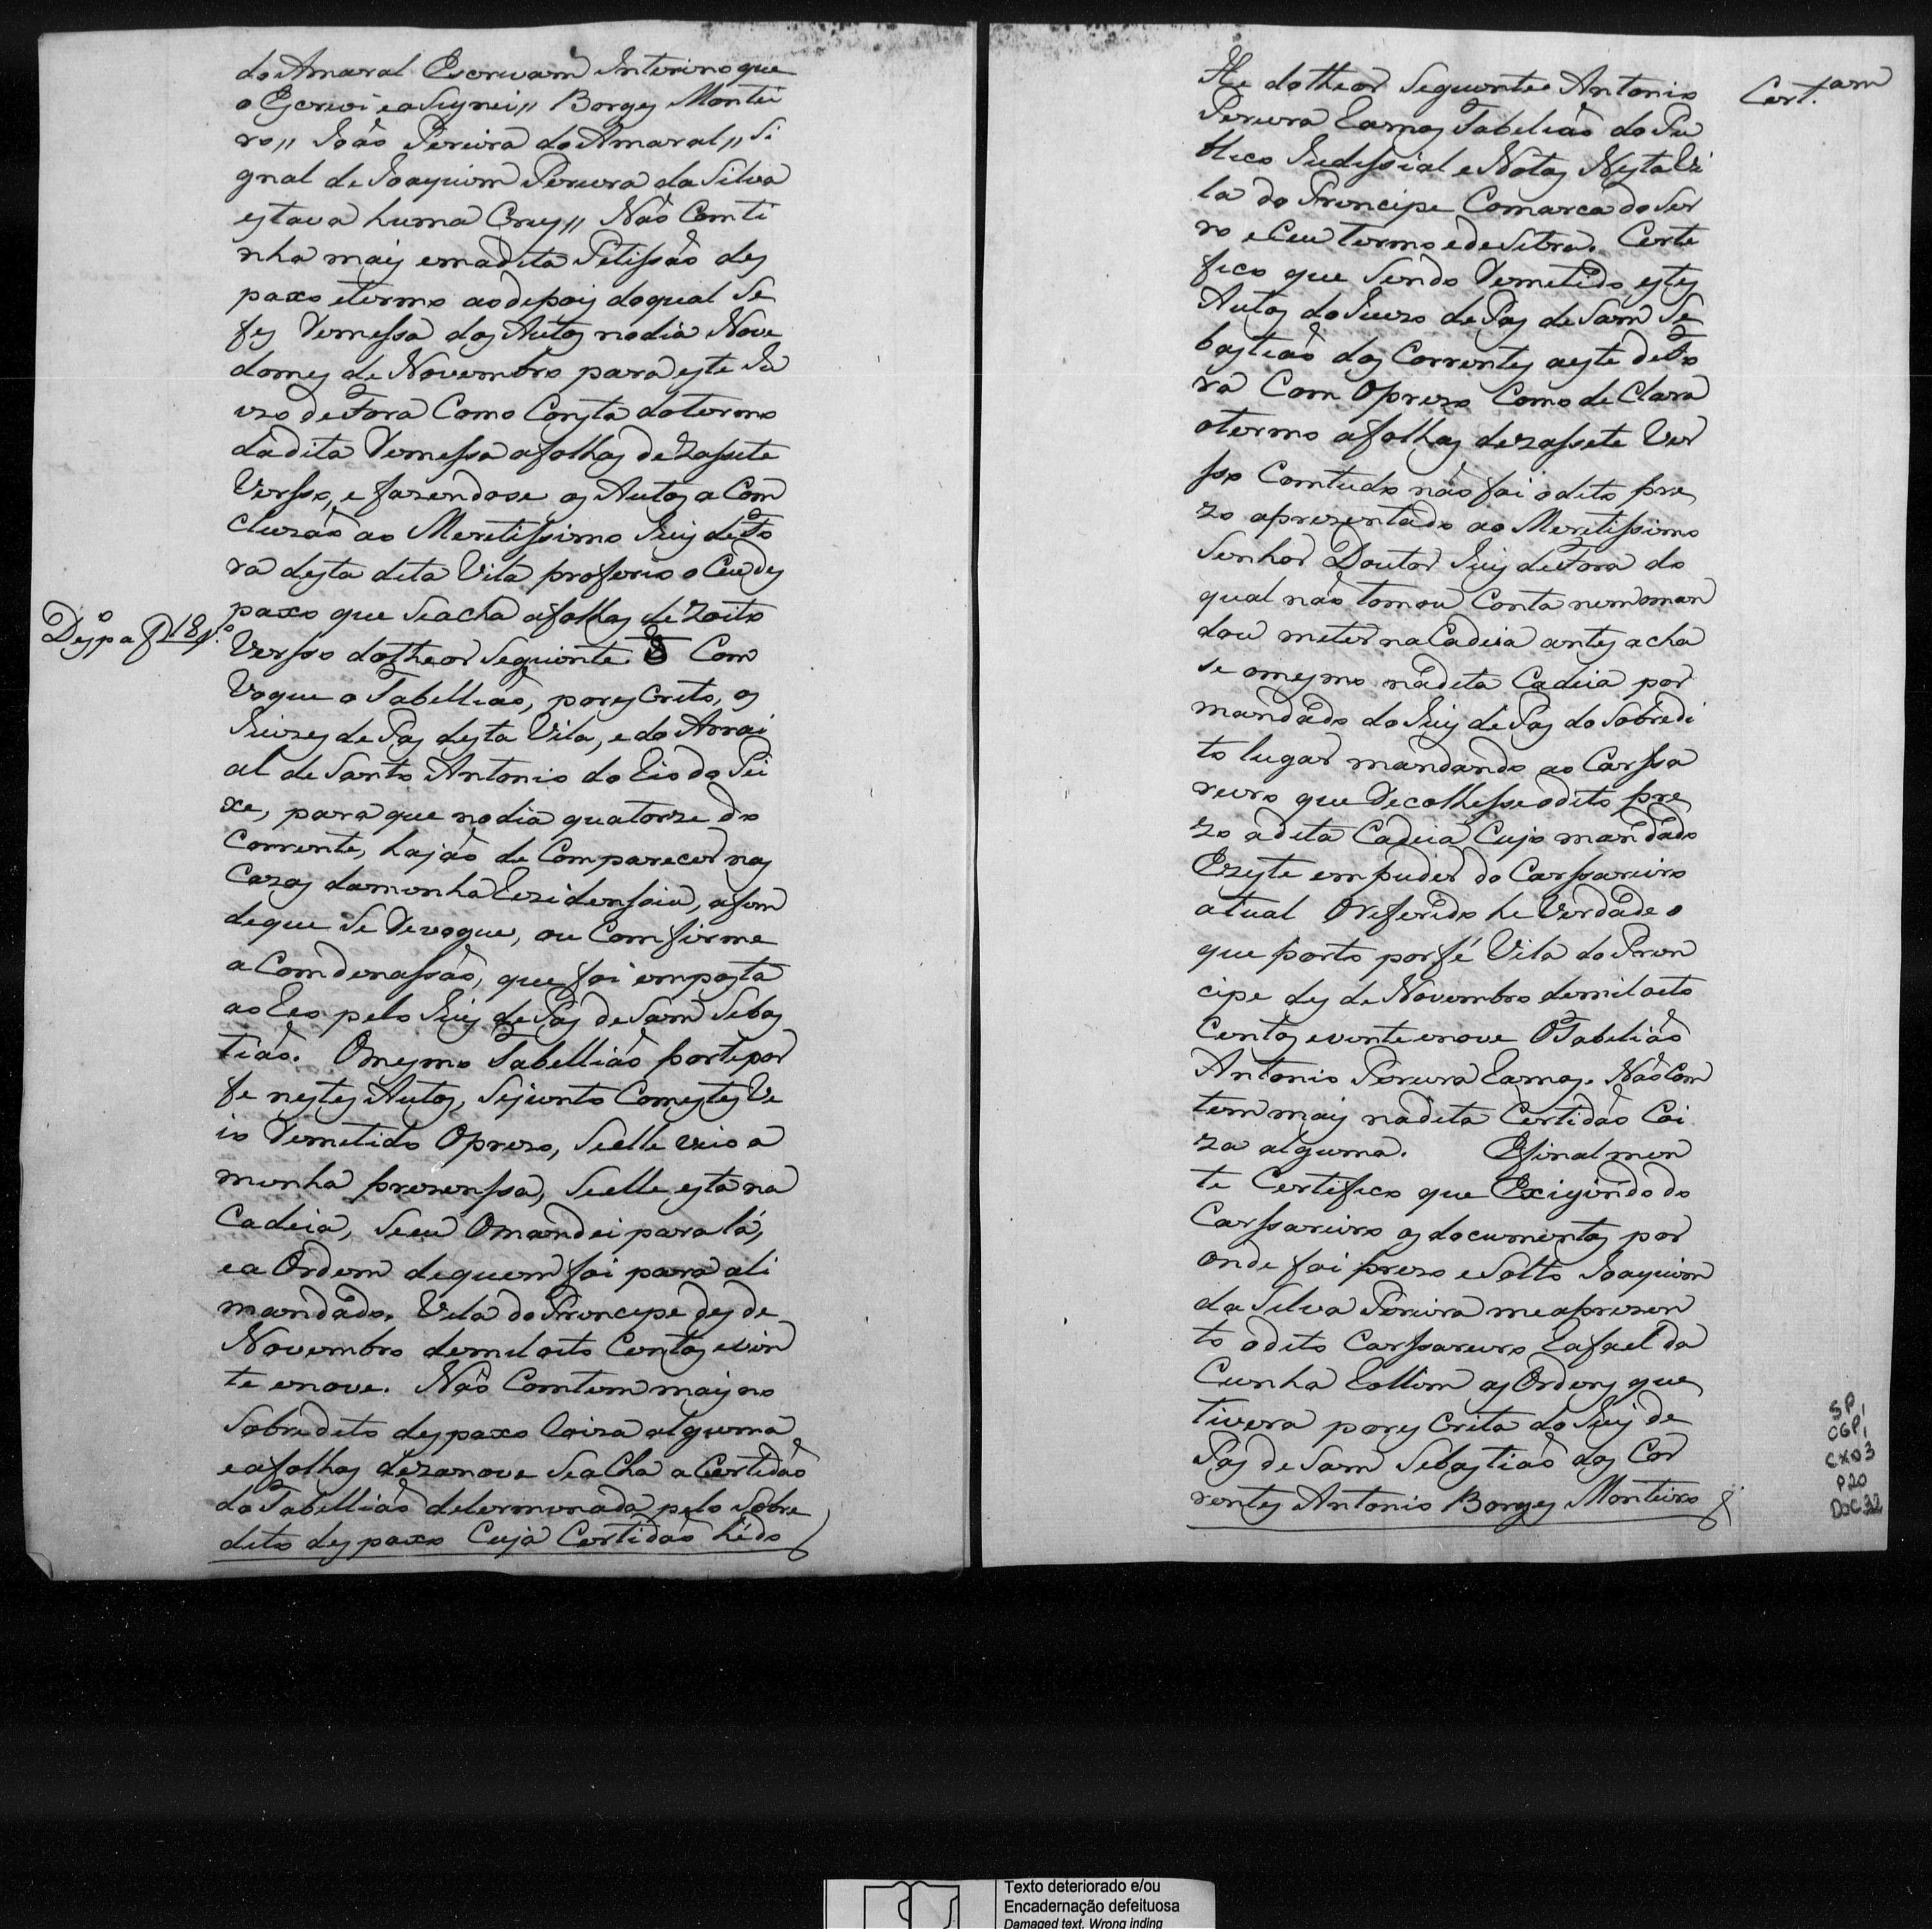 do Amaral Escrivam Interino que
o Escrevi e a Signei,, Borges Montei
ro,, João Pereira do Amaral,, Si
gnal de Joaquim Pereira da Silva
estava huma Crus,, Não Comti
nha mais em a dita Petissão des
paxo e termo ao depois do qual Se
fes Remessa dos Autos no dia Nove
do mes de Novembro para este Ju
izo de Fora Como Consta do termo
da dita Remessa a folhas dezassete
Versso, e fazendose os Autos a Com
cluzão ao Meretissimo Juis de Fo
ra desta dita Vila proferio o Ceu des
paxo que Se acha a folhas dezoito
Despaº f 18 vº.
Versso do theor Seguinte Com
Voque o Tabellião, por esCrito, os
Juizes de Pas desta Vila, e do Arrai
al de Santo Antonio do Rio do Pei
xe, para que no dia quatorze do
Corrente, hajão de Comparecer nas
Cazas da minha Rezidenssia, afim
de que Se Revogue, ou Comfirme
a Comdenassão, que foi imposta
ao Reo pelo Juis de Pas de Sam Sebas
tião. O mesmo Tabellião porte por
fe nestes Autos, Se junto Com estes Ve
io Remetido O prezo, Se elle veio a
minha prezenssa, Se elle esta na
Cadeia, Se eu O mandei para lá,
e a Ordem de quem foi para ali
mandado. Vila do Principe des de
Novembro de mil oito Centos e vin
te e nove. Não Comtem mais no
Sobredito despaxo Coiza alguma
e a folhas dezanove Se aCha a Certidão
do Tabellião determinada pelo Sobre
dito despaxo Cuja Certidão hé do
He do theor Seguinte Antonio
Cert.am
Pereira Ramos Tabelião do Pu
blico Judissial e Notas Nesta Vi
la do Principe Comarca do Ser
ro e Ceu termo e de Setra. Certe
fico que Sendo Remetido estes
Autos do Juizo de Pas de Sam Se
bastião dos Correntes a este de Fo
ra Com O prezo Como de Clara
o termo a folhas dezassete Ver
sso Comtudo não foi o dito pre
zo aprezentado ao Meretissimo
Senhor Doutor Juis de Fora do
qual não tomou Conta nem man
dou meter na Cadeia antes acha
se o mesmo na dita Cadeia por
mandado do Juis de Pas do Sobredi
to lugar mandando ao Carssa
reiro que Recolhesse o dito pre
zo a dita Cadeia Cujo mandado
Eziste em puder do Carssareiro
atual O referido he Verdade o
que porto por fé Vila do Prin
cipe des de Novembro de mil oito
Centos e vinte e nove O Tabelião
Antonio Pereira Ramos. Não Com
tem mais na dita Certidão Coi
za alguma. E final men
te Certifico que Exigindo do
Carssareiro os documentos por
onde foi prezo e Solto Joaquim
da Silva Pereira me aprezen
to o dito Carssareiro Rafael da
Cunha Rollim as Ordens que
tivera por esCrita do Juis de
Pas de Sam Sebastião dos Cor
rentes Antonio Borges Monteiro
SP,
CGP,
CX03
P20
DOC 32
Texto deteriorado e/ou
Encadernação defeituosa
Damaged text. Wrong inding